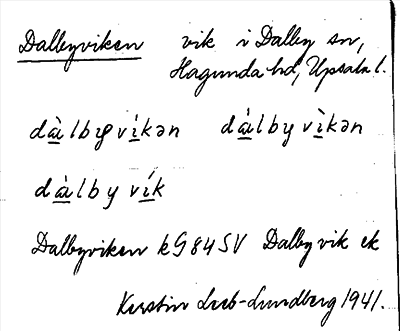 Dalbyviken vik i Dalby sn,
Hagunda hd, Upsala l.
dàlbyvíkən dálbyvìkən
dàlbyvík
Dalbyviken kG84SV Dalbyvik ek
Kerstin Leib-Lundberg 1941.